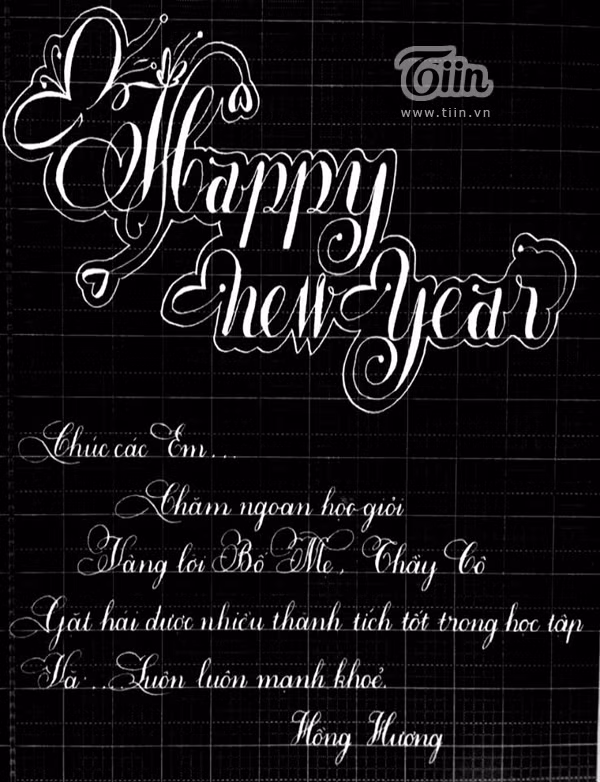 Tiin
www.tiin.vn
Happy
new Year
Chúc các Em...
Chăm ngoan học giỏi
Vâng lời Bố Mẹ, Thầy Cô
Gặt hái được nhiều thành tích tốt trong học tập
Và... Luôn luôn mạnh khoẻ.
Hồng Hương